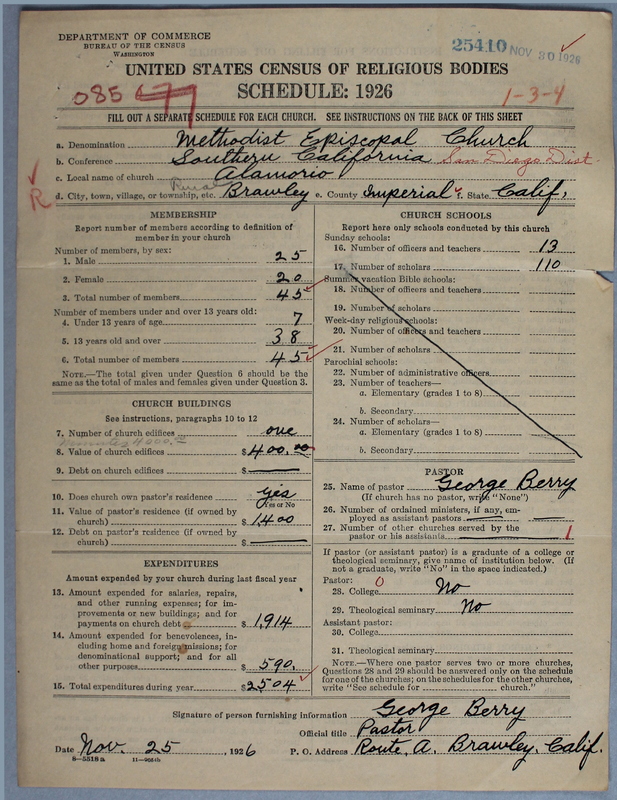 DEPARTMENT OF COMMERCE
BUREAU OF THE CENSUS
WASHINGTON
25410 NOV 30 1926
UNITED STATES CENSUS OF RELIGIOUS BODIES
085
SCHEDULE: 1926
1-3-4
FILL OUT A SEPARATE SCHEDULE FOR EACH CHURCH. SEE INSTRUCTIONS ON THE BACK OF THIS SHEET
a. Denomination Methodist Episcopal Church
b. Conference Southern California San Diego Dist.
c. Local name of church Alamorio
R d. City, town, village, or township, etc. Rural Brawley e. County Imperial f. State Calif,
MEMBERSHIP
Report number of members according to definition of
member in your church
Number of members, by sex:
1. Male 25
2. Female 20
3. Total number of members 45
Number of members under and over 13 years old:
4. Under 13 years of age 7
5. 13 years old and over 38
6. Total number of members 45
NOTE.—The total given under Question 6 should be the
same as the total of males and females given under Question 3.
CHURCH BUILDINGS
See instructions, paragraphs 10 to 12
7. Number of church edifices one
minutes 4000.00
8. Value of church edifices $400.00
9. Debt on church edifices $
10. Does church own pastor's residence yes
Yes or No
11. Value of pastor's residence (if owned by
church) $1,400
12. Debt on pastor's residence (if owned by
church) $
EXPENDITURES
Amount expended by your church during last fiscal year
13. Amount expended for salaries, repairs,
and other running expenses; for im-
provements or new buildings; and for
payments on church debt $1,914
14. Amount expended for benevolences, in-
cluding home and foreign missions; for
denominational support; and for all
other purposes $590.
15. Total expenditures during year $2504
CHURCH SCHOOLS
Report here only schools conducted by this church
Sunday schools:
16. Number of officers and teachers 13
17. Number of scholars 110
Summer vacation Bible schools:
18. Number of officers and teachers
19. Number of scholars
Week-day religious schools:
20. Number of officers and teachers
21. Number of scholars
Parochial schools:
22. Number of administrative officers
23. Number of teachers—
a. Elementary (grades 1 to 8)
b. Secondary
24. Number of scholars—
a. Elementary (grades 1 to 8)
b. Secondary
PASTOR
25. Name of pastor George Berry
(If church has no pastor, write "None")
26. Number of ordained ministers, if any, em-
ployed as assistant pastors
27. Number of other churches served by the
pastor or his assistants 1
If pastor (or assistant pastor) is a graduate of a college or
theological seminary, give name of institution below. (If
not a graduate, write "No" in the space indicated.)
Pastor:
28. College 0 No
29. Theological seminary No
Assistant pastor:
30. College
31. Theological seminary
NOTE.—Where one pastor serves two or more churches,
Questions 28 and 29 should be answered only on the schedule
for one of the churches; on the schedules for the other churches,
write "See schedule for church."
Signature of person furnishing information George Berry
Official title Pastor
Date Nov. 25, 1926 P. O. Address Route, A, Brawley, Calif.
8—5518 a